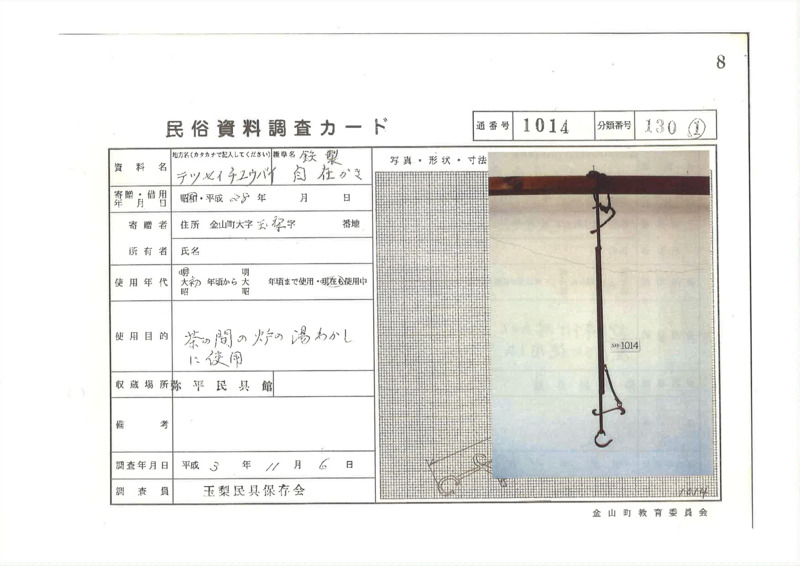 8
民俗資料調査カード
通番号 1014 分類番号 130 ①
資料名 地方名(カタカナで記入してください) 標準名 鉄製
テツセイチユウバイ 自在かぎ
写真・形状・寸法
寄贈・借用年月日 昭和・平成 28年 月 日
寄贈者 住所 金山町大字玉梨字 番地
所有者 氏名
使用年代 明大昭 初 年頃から 明大昭 年頃まで使用・現在も使用中
使用目的 茶の間の炉の湯わかし
に使用
収蔵場所 弥平民具館
備考
調査年月日 平成 3 年 11 月 6 日
調査員 玉梨民具保存会
1014
1014
金山町教育委員会